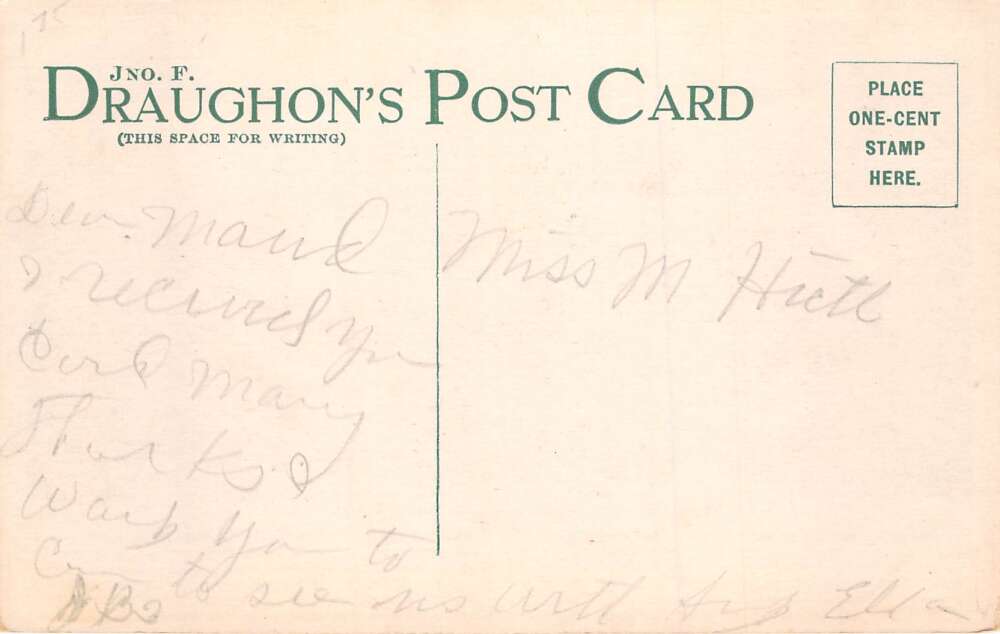 JNO. F.
DRAUGHON'S POST CARD
(THIS SPACE FOR WRITING)
PLACE
ONE-CENT
STAMP
HERE.
Dear Maud
I recived you
Card Many
Thanks I
you to
to see us
Ella
Miss M